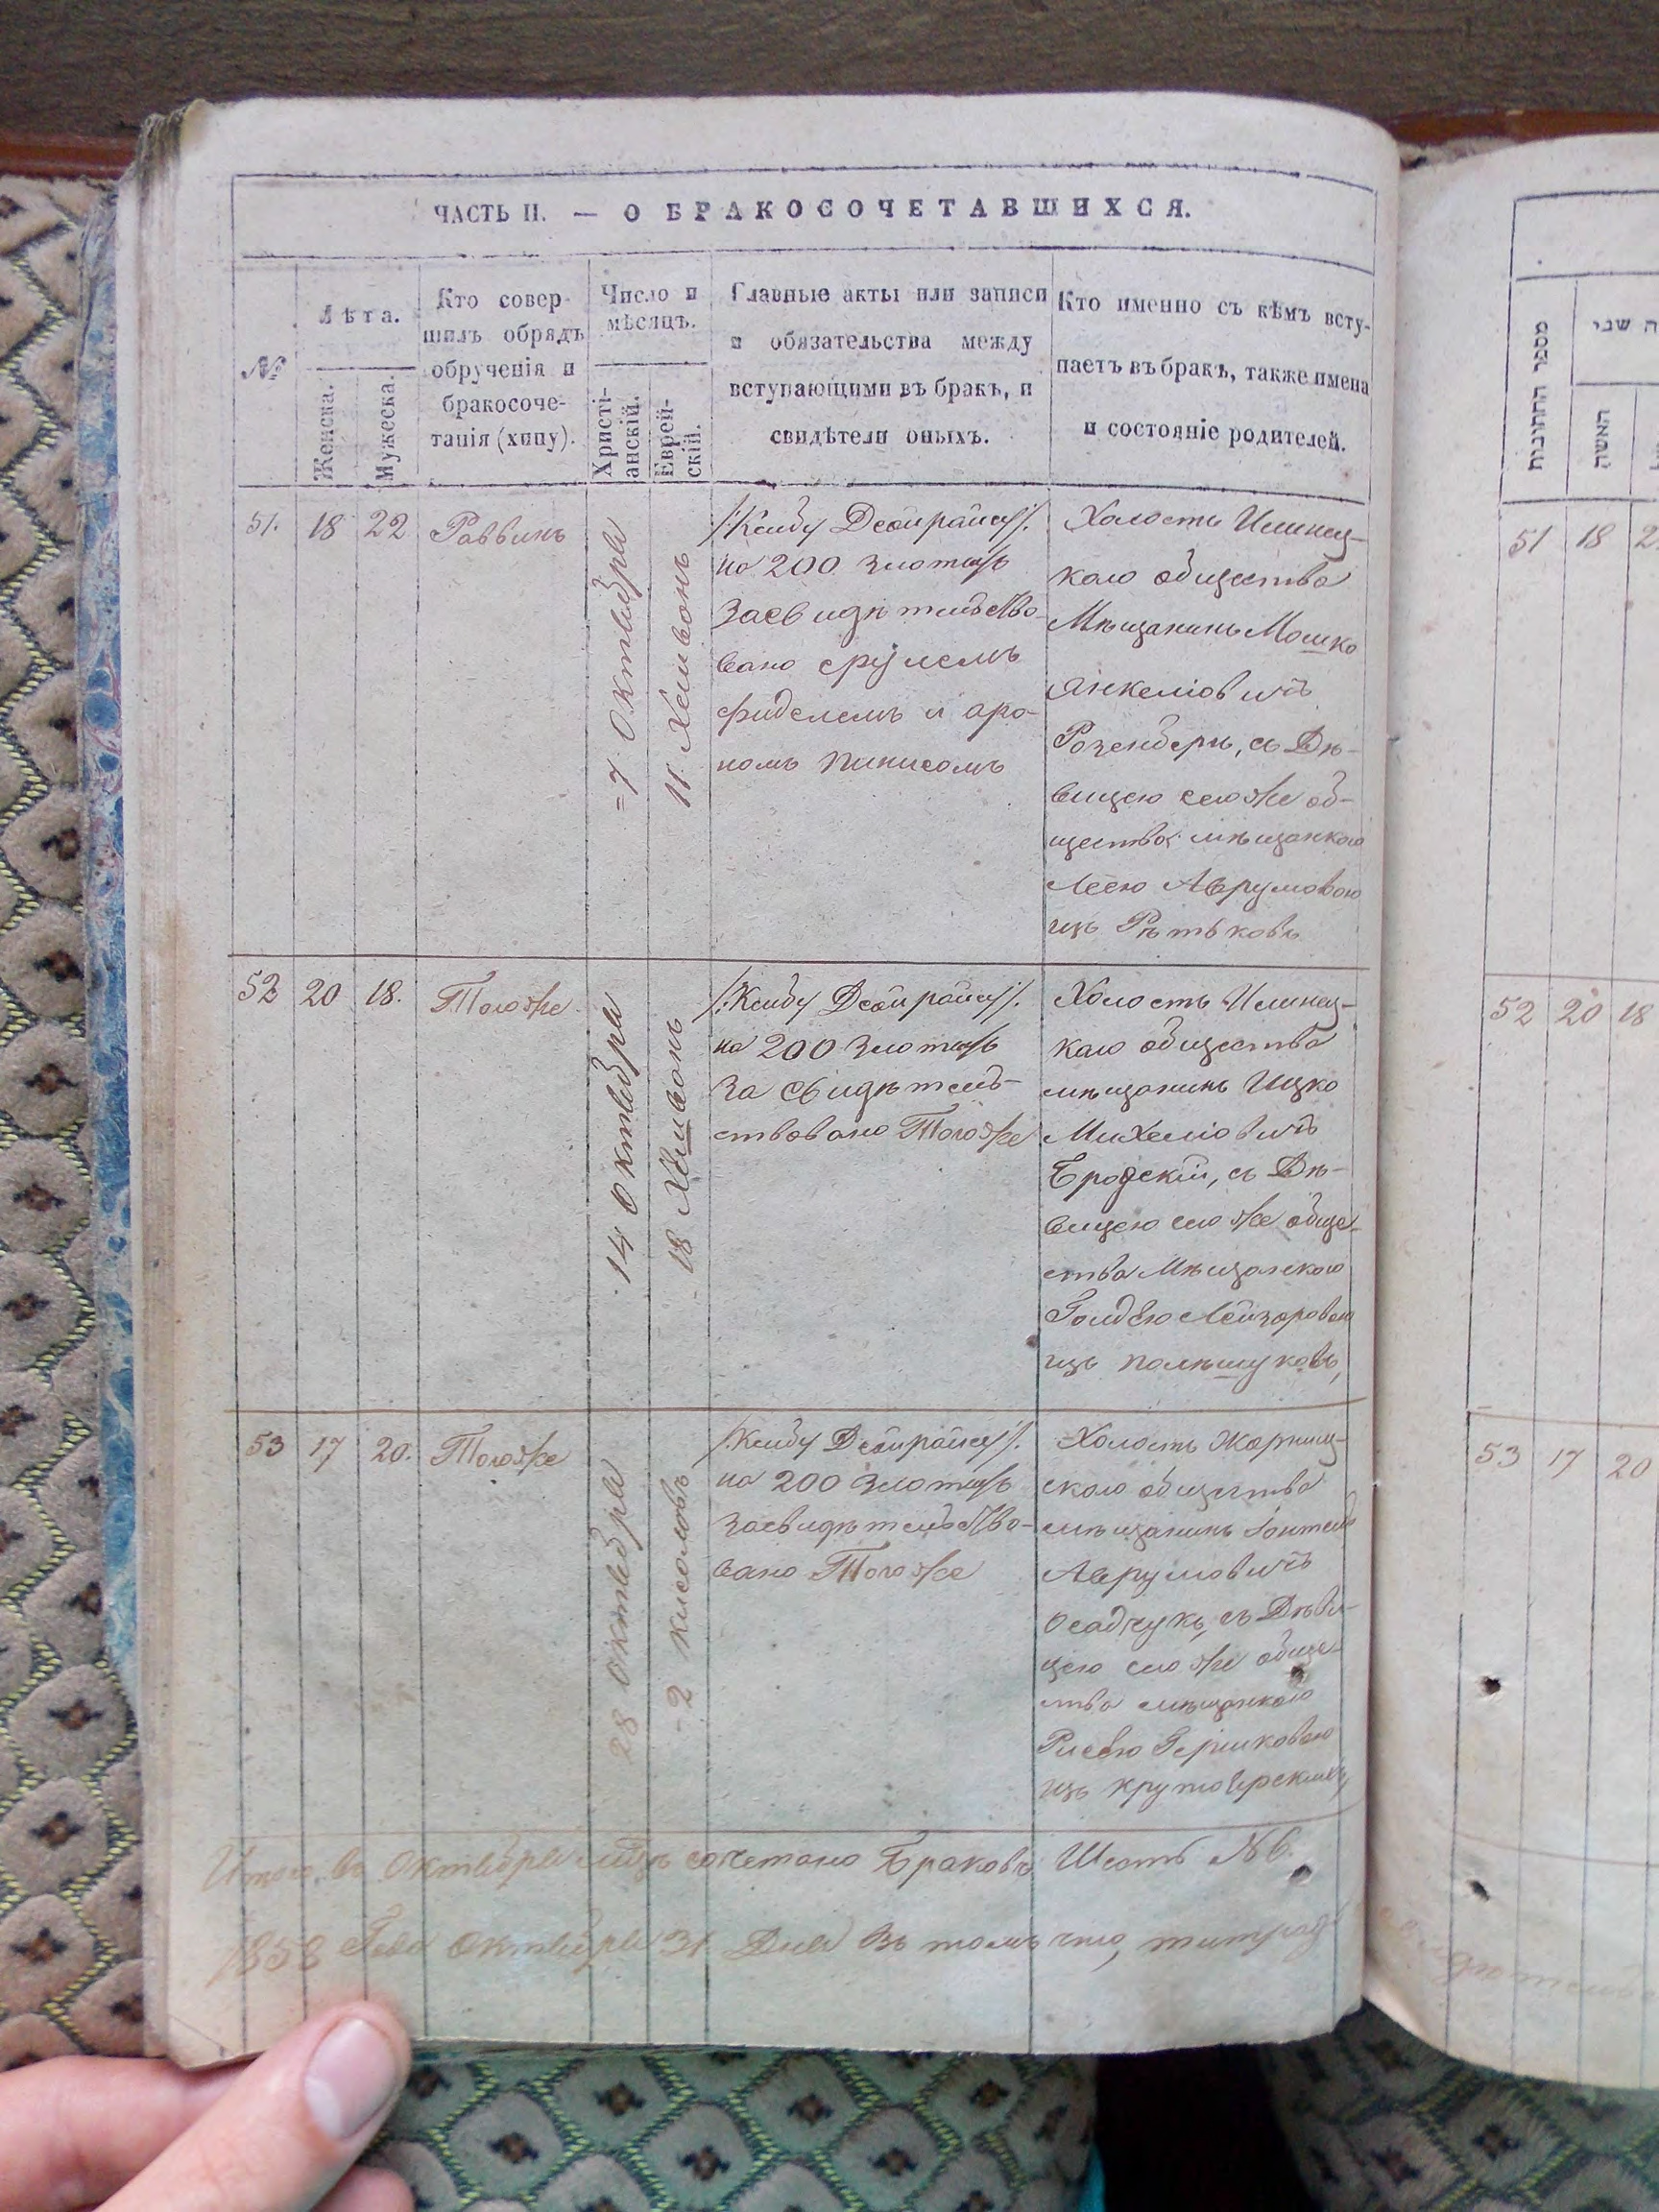 ЧАСТЬ II. — О БРАКОСОЧЕТАВШИХСЯ.
№
Лѣта.
Женска.
Мужеска.
Кто совер-
шилъ обрядъ
обрученія и
бракосоче-
танія (хипу).
Число и
мѣсяцъ.
Христі-
анскій.
Еврей-
скій.
Главные акты или записи
и обязательства между
вступающими въ бракъ, и
свидѣтели оныхъ.
Кто именно съ кѣмъ всту-
паетъ въ бракъ, также имена
и состояніе родителей.
51. 18 22 Раввинъ
=7 Октября
11 Хешвонъ
/:Ксибу Деойрайсу:/.
на 200 злотыхъ
засвидѣтельство-
вано срулемъ
фиделемъ и аро-
номъ пинисомъ
Холостъ Илинец-
каго общества
Мѣщанинъ Мошко
Янкеліовичъ
Розенберъ, съ Дѣ-
вицею сего же об-
щества мѣщанкою
Леею Аврумовою
изъ Рѣтьковъ
52 20 18. Тогоже
14 Октября
18 Хешвонъ
/:Ксибу Деойрайсу:/.
на 200 злотыхъ
засвидѣтель-
ствовано Тогоже
Холостъ Илинец-
каго общества
мѣщанинъ Ицко
Михеліовичъ
Бродскій, съ Дѣ-
вицею сего же обще-
ства Мѣщанскою
Голдею Лейзоровою
изъ полѣшуковъ,
53 17 20. Тогоже
28 Октября
2 кислевъ
/:Ксибу Деойрайсу:/.
на 200 злотыхъ
засвидѣтельство-
вано Тогоже
Холостъ Жорнищ-
скаго общества
мѣщанинъ
Аврумовичъ
Осадчукъ, съ Дѣви-
цею сего же обще-
ства мѣщанкою
Ривою Гершковою
изъ
Итого въ Октябрѣ мцѣ сочетано Браковъ Шесть №6.
1858 Года Октября 31 Дня въ томъ что,
מספר החתונות
האשה
51 18 2
52 20 18
53 17 20